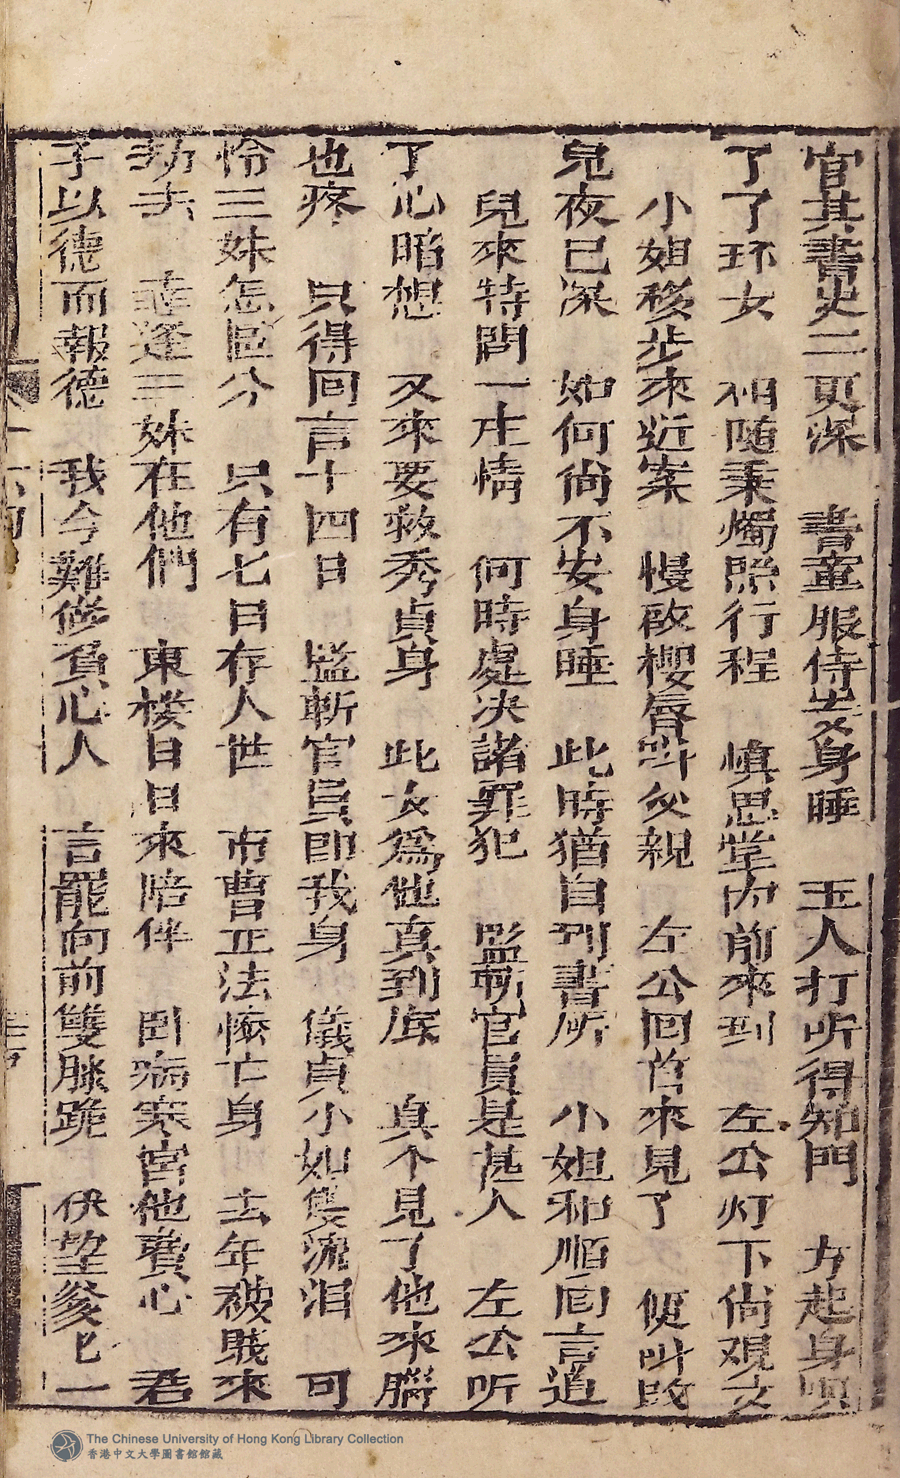 官其書史二更深　書童服侍爻身睡　玉人打听得知門　方起身
了了环女　相随秉燭照行程　慎思堂内前來到　左公灯下尚观女
小姐移步來近案　慢啟櫻唇叫父親　左公回首來見了　便叫
兒夜已深　如何尚不安身睡　此時猶自到書所　小姐和順回言道
兒來特問一庄情　何時處决諸罪犯　監斬官員是甚人　左公听
了心暗想　又來要救秀貞身　此女為他真到底　真个見了他來腦
也疼　只得回言十四日　監斬官員即我身　儀貞小姐隻流泪　可
怜三妹怎區分　只有七日存人世　市曹正法慘亡身　去年被賊來
劫去　幸逢三妹在他們　東楼日日來陪伴　卧病寒宮他費心　君
子以德而報德　我今難修負心人　言罷向前雙膝跪　伏望爹巳一
The Chinese University of Hong Kong Library Collection
香港中文大學圖書館館藏